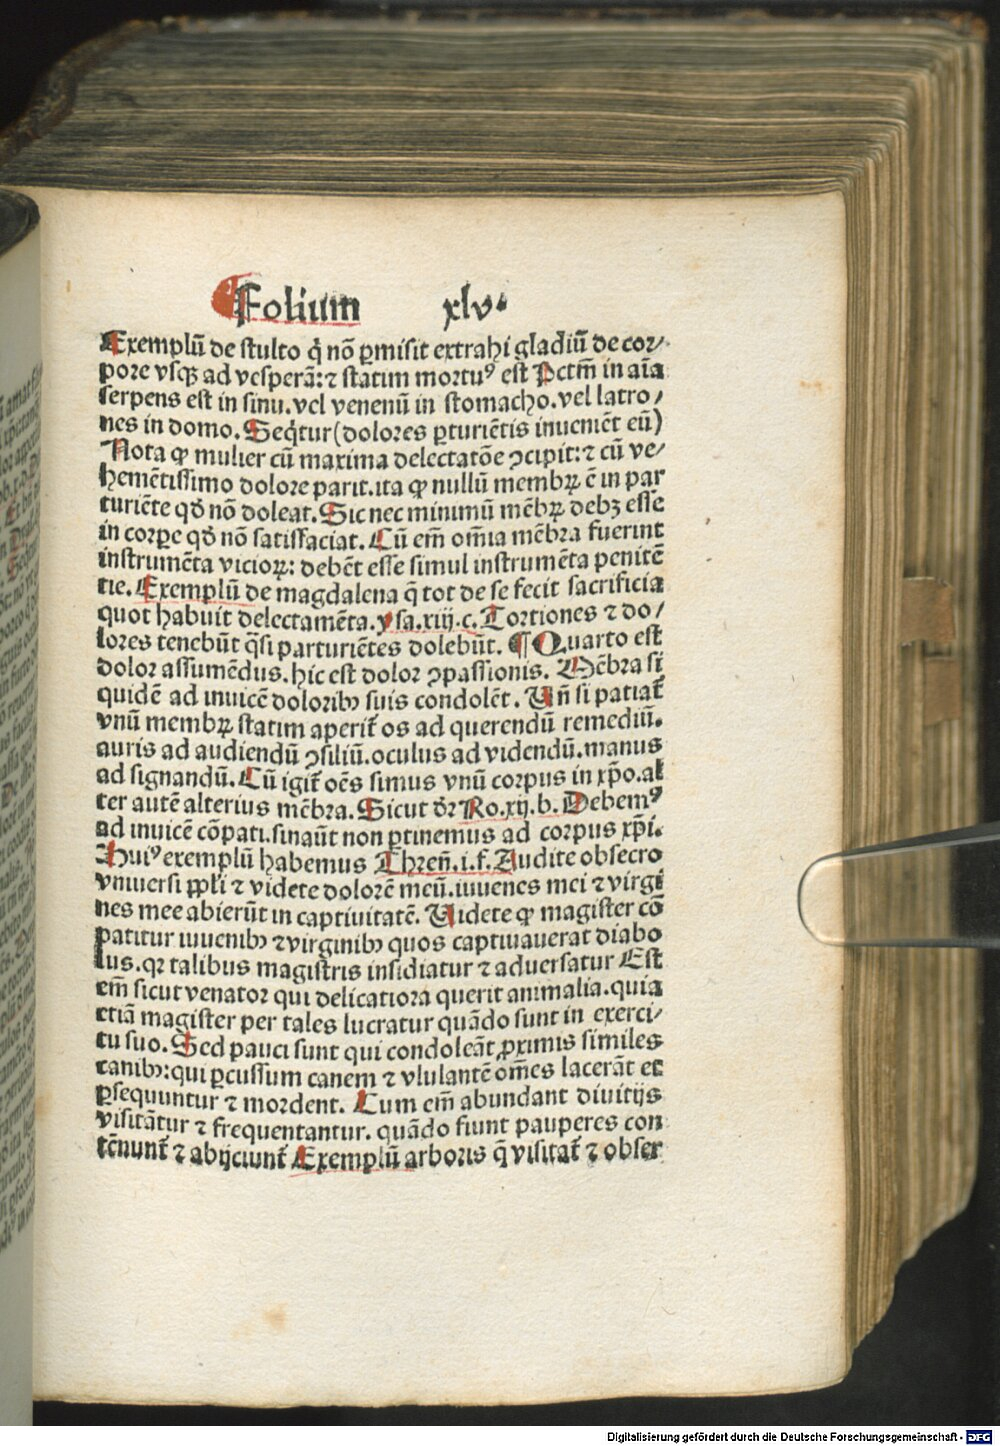 Folium xlv.
Exemplū de stulto q̇ nō ꝑmisit extrahi gladiū de cor/
pore vsqꝫ ad vesperā: ⁊ statim mortuꝰ est Pctm̄ in aīa
serpens est in sinu. vel venenū in stomacho. vel latro/
nes in domo. Seq̇tur (dolores ꝑturiētis inueniēt eū)
Nota ꝙ mulier cū maxima delectatōe ꝯcipit: ⁊ cū ve/
hemētissimo dolore parit. ita ꝙ nullū membꝝ ē in par
turiēte qđ nō doleat. Sic nec minimū mēbꝝ debꝫ esse
in corꝑe qđ nō satisfaciat. Cū em̄ om̄ia mēbra fuerint
instrumēta vicioꝝ: debēt esse simul instrumēta penitē
tie. Exemplū de magdalena q̄ tot de se fecit sacrificia
quot habuit delectamēta. ysa. xiij. c. Tortiones ⁊ do/
lores tenebūt q̄si parturiētes dolebūt. ¶ Quarto est
dolor assumēdus. hic est dolor ꝯpassionis. Mēbra si
quidē ad inuicē doloribꝫ suis condolēt. Vn̄ si patiat᷑
vnū membꝝ statim aperit᷑ os ad querendū remediū.
auris ad audiendū ꝯsiliū. oculus ad videndū. manus
ad signandū. Cū igit᷑ oēs simus vnū corpus in xp̄o. al
ter autē alterius mēbra. Sicut dr̄ Ro. xij. b. Debemꝰ
ad inuicē cōpati. sinaūt non ꝑtinemus ad corpus xp̄i.
Huiꝰ exemplū habemus Thren̄. i. f. Audite obsecro
vniuersi pp̄li ⁊ videte dolorē meū. iuuenes mei ⁊ virgi
nes mee abierūt in captiuitatē. Videte ꝙ magister cō
patitur iuuenibꝫ ⁊ virginibꝫ quos captiuauerat diabo
lus. qꝛ talibus magistris insidiatur ⁊ aduersatur Est
em̄ sicut venator qui delicatiora querit animalia. quia
etiā magister per tales lucratur quādo sunt in exerci/
tu suo. Sed pauci sunt qui condoleāt ꝓximis similes
canibꝫ: qui ꝑcussum canem ⁊ vlulantē om̄es lacerāt et
ꝑsequuntur ⁊ mordent. Cum em̄ abundant diuitijs
visitātur ⁊ frequentantur. quādo fiunt pauperes con
tēnunt᷑ ⁊ abijciunt᷑ Exemplū arboris q̄ visitat᷑ ⁊ obser
Digitalisierung gefördert durch die Deutsche Forschungsgemeinschaft - DFG